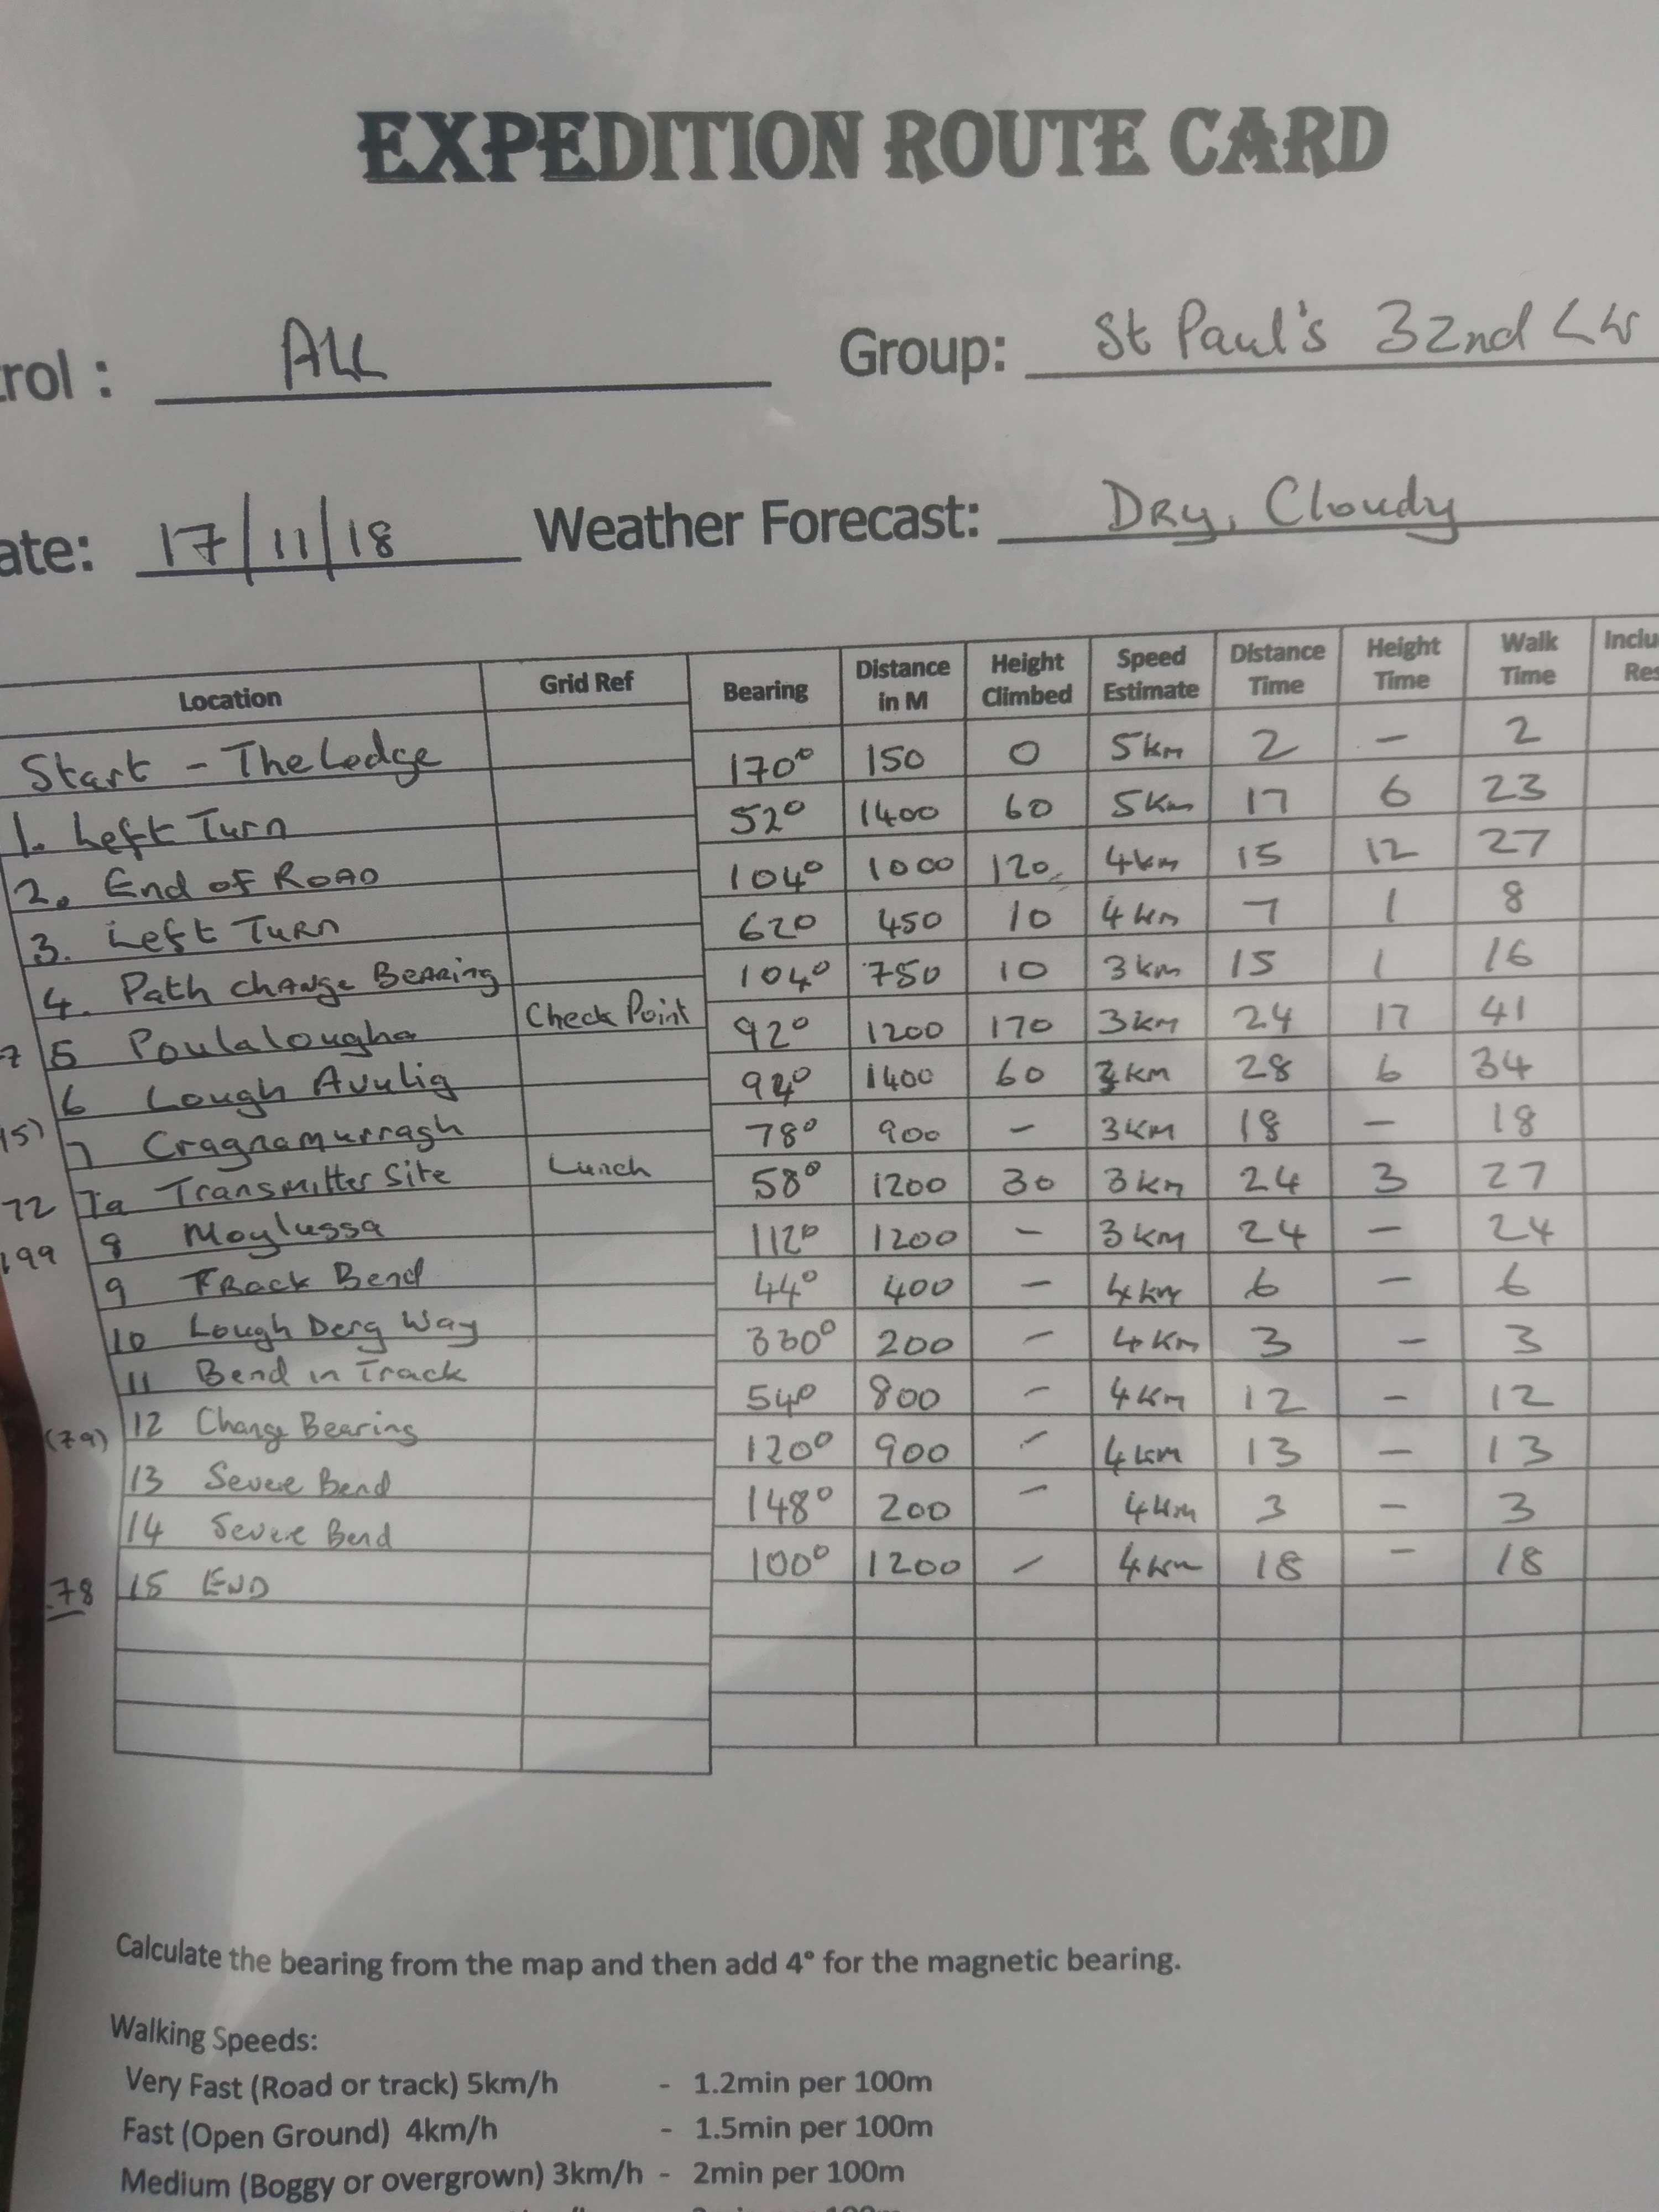 EXPEDITION ROUTE CARD
rol : ALL Group: St Paul's 32nd LK
ate: 17/11/18 Weather Forecast: Dry, Cloudy
Location Grid Ref Bearing Distance in M Height Climbed Speed Estimate Distance Time Height Time Walk Time Inclu Res
Start - The Ledge 170° 150 0 5km 2 - 2
1. Left Turn 52° 1400 60 5km 17 6 23
2. End of Road 104° 1000 120 4km 15 12 27
3. Left Turn 62° 450 10 4km 7 1 8
4. Path change Bearing 104° 750 10 3km 15 1 16
7 5 Poulalougha Check Point 92° 1200 170 3km 24 17 41
6 Lough Avulig 92° 1400 60 3km 28 6 34
15) 7 Cragnamurragh 78° 900 - 3km 18 - 18
72 7a Transmitter Site Lunch 58° 1200 30 3km 24 3 27
199 8 Moylussa 112° 1200 - 3km 24 - 24
9 Track Bend 44° 400 - 4km 6 - 6
10 Lough Derg Way 330° 200 - 4km 3 - 3
11 Bend in Track 54° 800 - 4km 12 - 12
(79) 12 Change Bearing 120° 900 - 4km 13 - 13
13 Severe Bend 148° 200 - 4km 3 - 3
14 Severe Bend 100° 1200 - 4km 18 - 18
.78 15 END
Calculate the bearing from the map and then add 4° for the magnetic bearing.
Walking Speeds:
Very Fast (Road or track) 5km/h - 1.2min per 100m
Fast (Open Ground) 4km/h - 1.5min per 100m
Medium (Boggy or overgrown) 3km/h - 2min per 100m